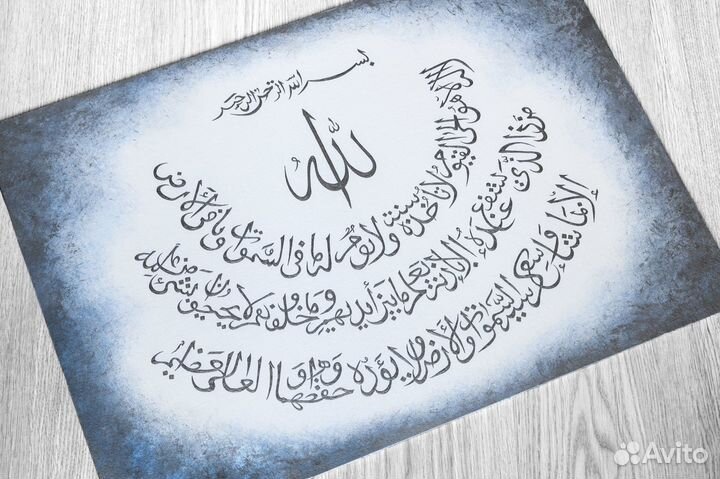 بسم الله الرحمن الرحيم
الله
لا إله إلا هو الحي القيوم لا تأخذه سنة ولا نوم له ما في السموات وما في الأرض
من ذا الذي يشفع عنده إلا بإذنه يعلم ما بين أيديهم وما خلفهم ولا يحيطون بشيء من علمه
إلا بما شاء وسع كرسيه السموات والأرض ولا يؤده حفظهما وهو العلي العظيم
Avito